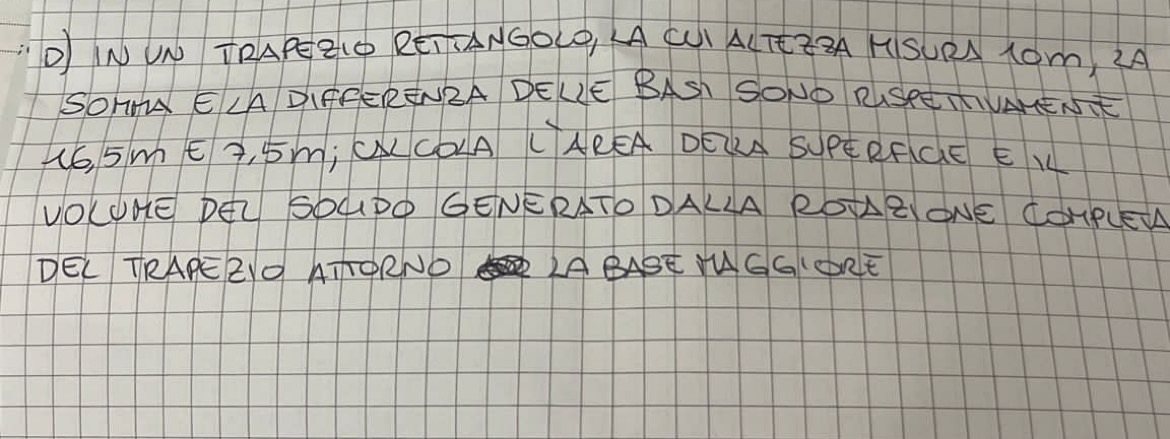 D) IN UN TRAPEZIO RETTANGOLO, LA CUI ALTEZZA MISURA 10m, LA
SOMMA E LA DIFFERENZA DELLE BASI SONO RISPETTIVAMENTE
16,5m E 7,5m; CALCOLA L'AREA DELLA SUPERFICIE E IL
VOLUME DEL SOLIDO GENERATO DALLA ROTAZIONE COMPLETA
DEL TRAPEZIO ATTORNO LA BASE MAGGIORE